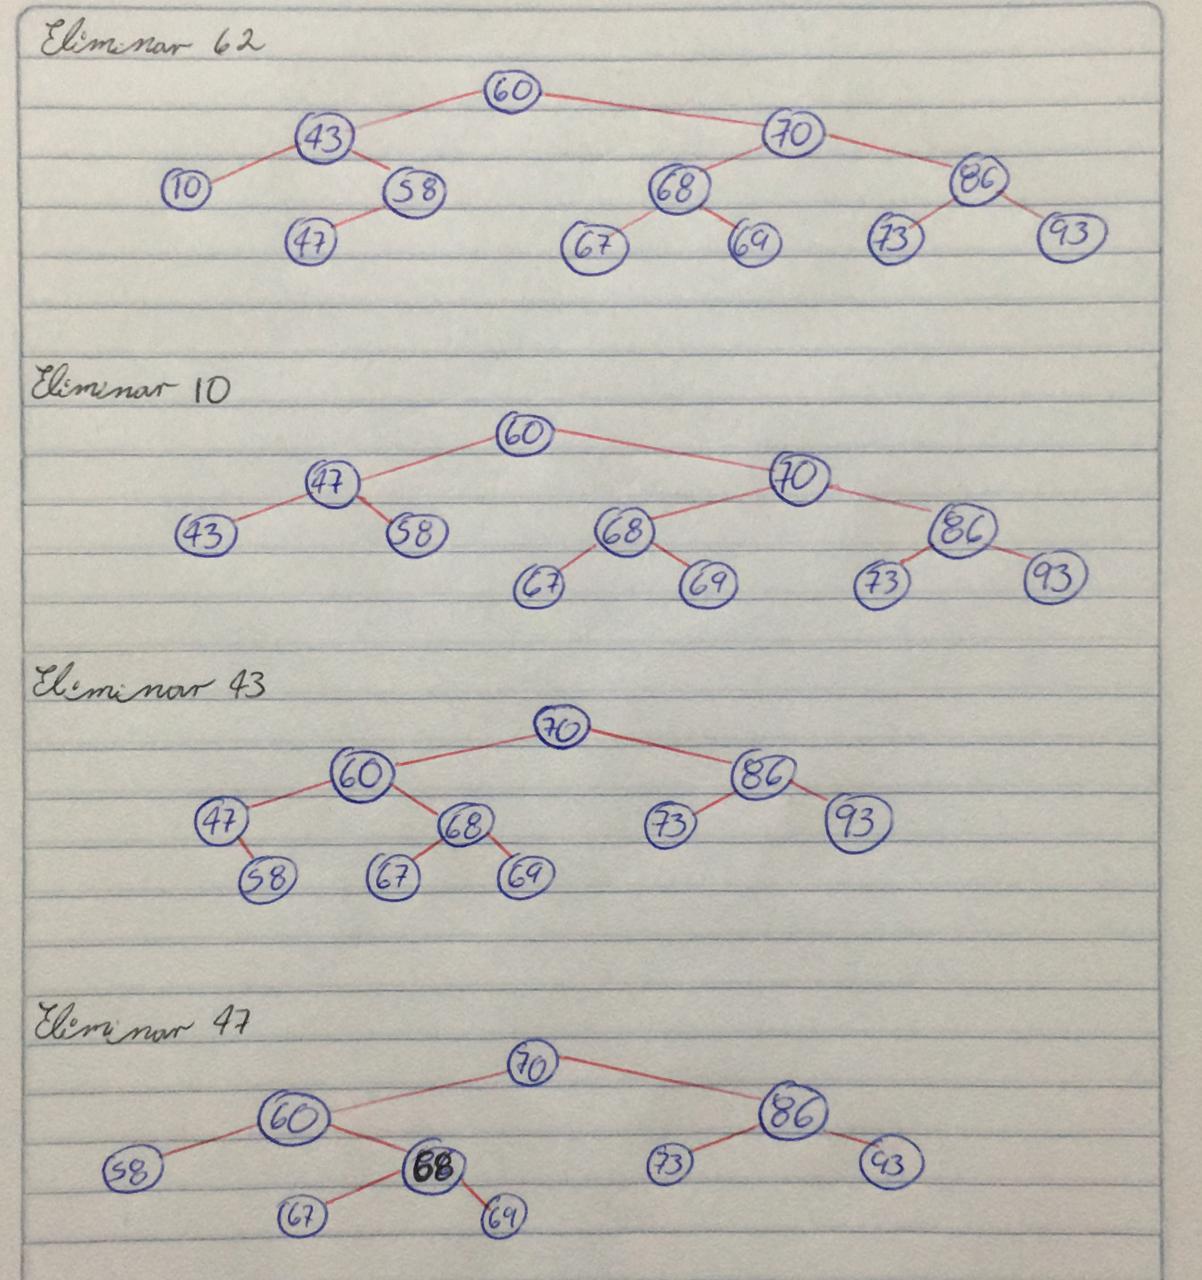 Eliminar 62
60
43 70
10 58 68 86
47 67 69 73 93
Eliminar 10
60
47 70
43 58 68 86
67 69 73 93
Eliminar 43
70
60 86
47 68 73 93
58 67 69
Eliminar 47
70
60 86
58 68 73 93
67 69